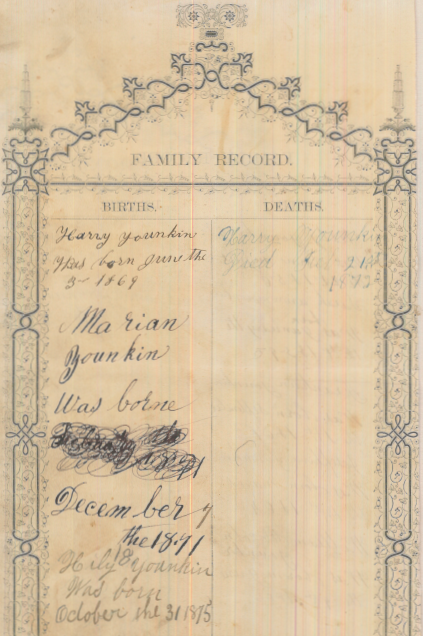 FAMILY RECORD.
BIRTHS.
DEATHS.
Harry Younkin
Was born June the
3 - 1869
Harry Younkin
Died 21
1872
Marian
Younkin
Was borne
1871
December 7
the 1871
Younkin
Was born
October the 31 1875